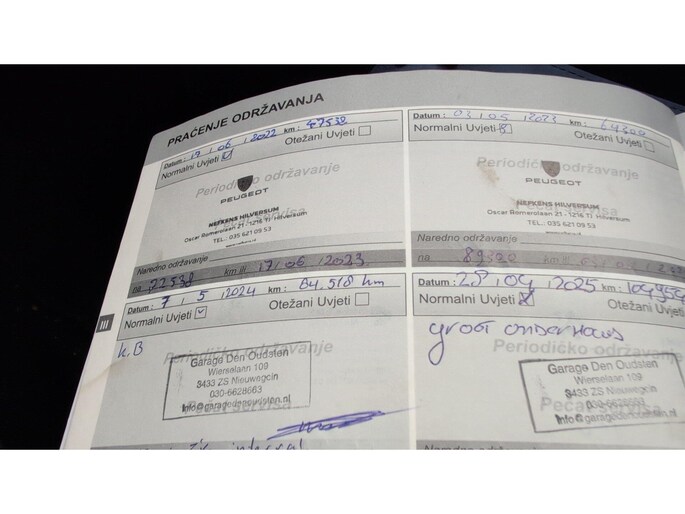 PRAĆENJE ODRŽAVANJA
Datum : 17 , 06 , 2022 km : 47538
Normalni Uvjeti Otežani Uvjeti
Periodičko održavanje
PEUGEOT
NEFKENS HILVERSUM
Oscar Romerolaan 21 - 1216 TJ Hilversum
TEL.: 035 621 09 53
Naredno održavanje
na 72538 km ili 17 , 06 , 2023
Datum : 03 , 05 , 2023 km :
Normalni Uvjeti Otežani Uvjeti
Periodičko održavanje
PEUGEOT
NEFKENS HILVERSUM
Oscar Romerolaan 21 - 1216 TJ Hilversum
TEL.: 035 621 09 53
Naredno održavanje
na 89322 km ili
III
Datum : 7 , 5 , 2024 km : 84,518 km
Normalni Uvjeti Otežani Uvjeti
K.B
Periodičko održavanje
Garage Den Oudsten
Wierselaan 109
3433 ZS Nieuwegein
030-6628663
info@garagedenoudsten.nl
Datum : 28 , 04 , 2025 km :
Normalni Uvjeti Otežani Uvjeti
groot onderhoud
Periodičko održavanje
Garage Den Oudsten
Wierselaan 109
3433 ZS Nieuwegein
030-6628663
info@garagedenoudsten.nl